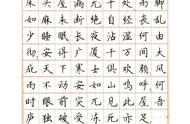 床头屋漏无干处雨脚
如麻未断绝自经丧乱
少睡眠长夜沾湿何由
彻安得广厦千万间大
庇天下寒士俱欢颜风
雨不动安如山呜呼何
时眼前突兀见此屋吾
庐独破受冻死亦足